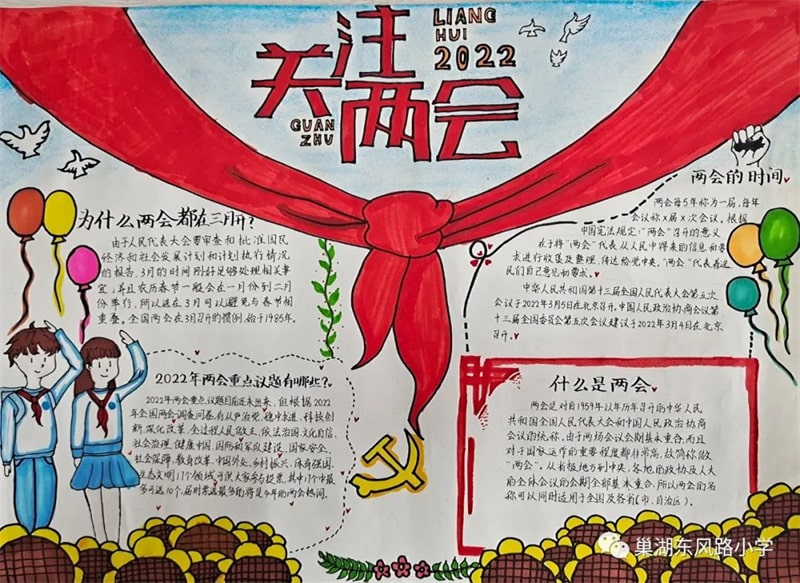 LIANG
HUI
2022
关注
两会
GUAN
ZHU
为什么两会都在三月开?
由于人民代表大会要审查和批准国民
经济和社会发展计划和计划执行情况
的报告,3月的时间刚好足够处理相关事
宜;并且农历春节一般会在一月份到二月
份举行,所以选在3月可以避免与春节相
重叠。全国两会在3月召开的惯例,始于1985年。
两会的时间
两会每5年称为一届,每年
会议称X届X次会议。根据
中国宪法规定:“两会”召开的意义
在于将“两会”代表从人民中得来的信息和要
求进行收集及整理,传达给党中央。“两会”代表着选
民们自己意见和要求。
中华人民共和国第十三届全国人民代表大会第五次
会议于2022年3月5日在北京召开。中国人民政治协商会议第
十三届全国委员会第五次会议建议于2022年3月4日在北京
召开。
2022年两会重点议题有哪些?
2022年两会重点议题目前还未出来,但根据2022
年全国两会调查问卷,有从严治党,稳中求进,科技创
新,深化改革,全过程人民民主,依法治国,文化自信,
社会治理,健康中国,国防和军队建设,国家安全,
社会保障,教育改革,中国外交,乡村振兴,体育强国,
生态文明17个领域可供大家参与投票,其中17个中最
多可选10个。届时票选最多的将是今年的两会热词。
什么是两会
两会是对自1959年以年历召开的中华人民
共和国全国人民代表大会和中国人民政治协商
会议的统称。由于两场会议会期基本重合,而且
对于国家运作的重要程度都非常高,故简称做
“两会”。从省级地方到中央,各地的政协及人大
的全体会议的会期全部基本重合,所以两会的名
称可以同时适用于全国及各省(市、自治区)。
巢湖东风路小学